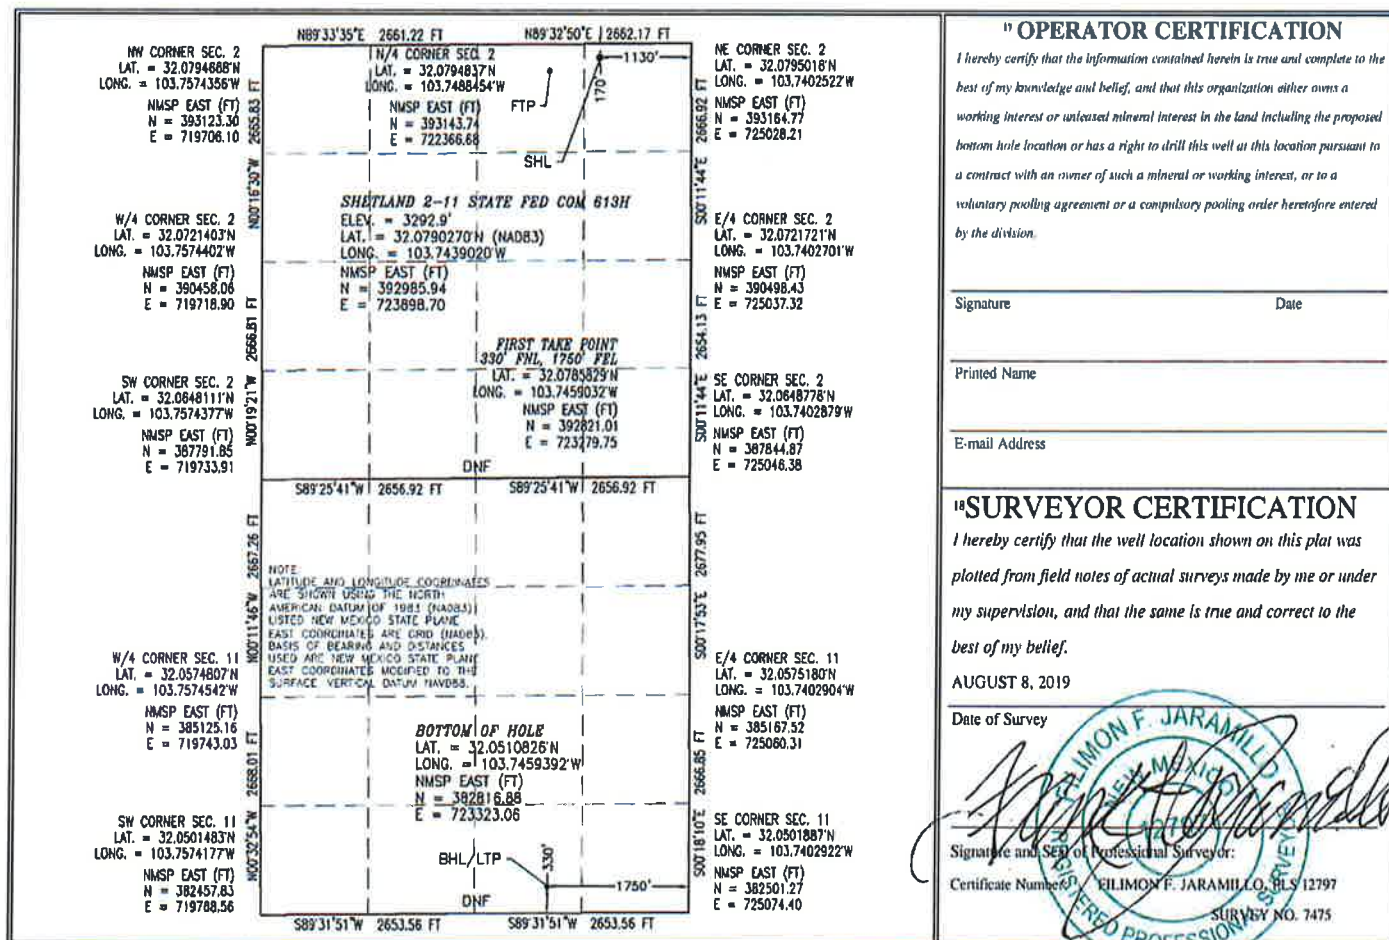 N89°33'35"E 2661.22 FT
N89°32'50"E 2662.17 FT
NW CORNER SEC. 2
LAT. = 32.0794688'N
LONG. = 103.7574356'W
NMSP EAST (FT)
N = 393123.30
E = 719706.10
N/4 CORNER SEC. 2
LAT. = 32.0794837'N
LONG. = 103.7488454'W
NMSP EAST (FT)
N = 393143.74
E = 722366.68
FTP
SHL
170'
1130'
NE CORNER SEC. 2
LAT. = 32.0795018'N
LONG. = 103.7402522'W
NMSP EAST (FT)
N = 393164.77
E = 725028.21
N00°16'30"W 2665.83 FT
S00°11'44"E 2666.92 FT
SHETLAND 2-11 STATE FED COM 613H
ELEV. = 3292.9'
LAT. = 32.0790270'N (NAD83)
LONG. = 103.7439020'W
NMSP EAST (FT)
N = 392985.94
E = 723898.70
W/4 CORNER SEC. 2
LAT. = 32.0721403'N
LONG. = 103.7574402'W
NMSP EAST (FT)
N = 390458.06
E = 719718.90
E/4 CORNER SEC. 2
LAT. = 32.0721721'N
LONG. = 103.7402701'W
NMSP EAST (FT)
N = 390498.43
E = 725037.32
N00°19'21"W 2666.81 FT
S00°11'44"E 2654.13 FT
FIRST TAKE POINT
330' FNL, 1750' FEL
LAT. = 32.0785829'N
LONG. = 103.7459032'W
NMSP EAST (FT)
N = 392821.01
E = 723279.75
SW CORNER SEC. 2
LAT. = 32.0648111'N
LONG. = 103.7574377'W
NMSP EAST (FT)
N = 387791.85
E = 719733.91
SE CORNER SEC. 2
LAT. = 32.0648778'N
LONG. = 103.7402879'W
NMSP EAST (FT)
N = 387844.87
E = 725046.38
DNF
S89°25'41"W 2656.92 FT
S89°25'41"W 2656.92 FT
N00°11'46"W 2667.26 FT
S00°17'53"E 2677.95 FT
NOTE
LATITUDE AND LONGITUDE COORDINATES
ARE SHOWN USING THE NORTH
AMERICAN DATUM OF 1983 (NAD83)
LISTED NEW MEXICO STATE PLANE
EAST COORDINATES ARE GRID (NAD83).
BASIS OF BEARING AND DISTANCES
USED ARE NEW MEXICO STATE PLANE
EAST COORDINATES MODIFIED TO THE
SURFACE VERTICAL DATUM NAVD88.
W/4 CORNER SEC. 11
LAT. = 32.0574807'N
LONG. = 103.7574542'W
NMSP EAST (FT)
N = 385125.16
E = 719743.03
E/4 CORNER SEC. 11
LAT. = 32.0575180'N
LONG. = 103.7402904'W
NMSP EAST (FT)
N = 385167.52
E = 725060.31
N00°32'54"W 2668.01 FT
S00°18'10"E 2666.85 FT
BOTTOM OF HOLE
LAT. = 32.0510826'N
LONG. = 103.7459392'W
NMSP EAST (FT)
N = 382816.88
E = 723323.06
SW CORNER SEC. 11
LAT. = 32.0501483'N
LONG. = 103.7574177'W
NMSP EAST (FT)
N = 382457.83
E = 719788.56
SE CORNER SEC. 11
LAT. = 32.0501887'N
LONG. = 103.7402922'W
NMSP EAST (FT)
N = 382501.27
E = 725074.40
BHL/LTP
330'
1750'
DNF
S89°31'51"W 2653.56 FT
S89°31'51"W 2653.56 FT
17 OPERATOR CERTIFICATION
I hereby certify that the information contained herein is true and complete to the
best of my knowledge and belief, and that this organization either owns a
working interest or unleased mineral interest in the land including the proposed
bottom hole location or has a right to drill this well at this location pursuant to
a contract with an owner of such a mineral or working interest, or to a
voluntary pooling agreement or a compulsory pooling order heretofore entered
by the division.
Signature Date
Printed Name
E-mail Address
18 SURVEYOR CERTIFICATION
I hereby certify that the well location shown on this plat was
plotted from field notes of actual surveys made by me or under
my supervision, and that the same is true and correct to the
best of my belief.
AUGUST 8, 2019
Date of Survey
FILIMON F. JARAMILLO
NEW MEXICO
REGISTERED PROFESSIONAL SURVEYOR
Signature and Seal of Professional Surveyor:
Certificate Number: FILIMON F. JARAMILLO, PLS 12797
SURVEY NO. 7475